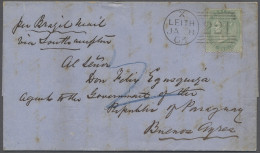 per Brazil Mail
via Southampton
LEITH
JA
Al Señor
Don Félix Egusquiza
Agente to the Government of the
Republic of Paraguay
Buenos Ayres